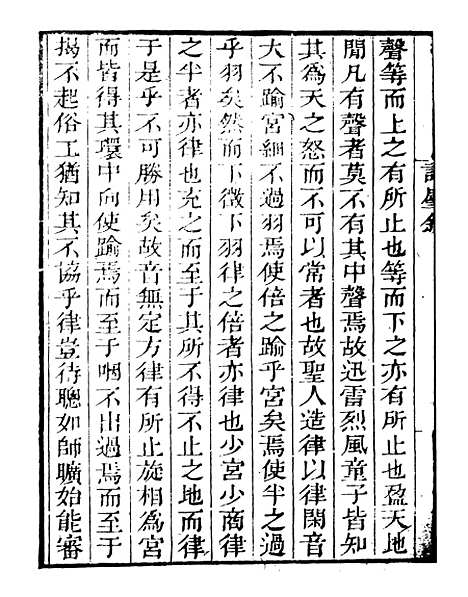 聲等而上之有所止也等而下之亦有所止也盈天地
閒凡有聲者莫不有其中聲焉故迅雷烈風童子皆知
其為天之怒而不可以常者也故聖人造律以律閑音
大不踰宮細不過羽焉使倍之踰乎宮矣焉使半之過
乎羽矣然而下徵下羽律之倍者亦律也少宮少商律
之半者亦律也充之而至于其所不得不止之地而律
于是乎不可勝用矣故音無定方律有所止旋相為宮
而皆得其環中向使踰焉而至于咽不出過焉而至于
揭不起俗工猶知其不協乎律豈待聰如師曠始能審